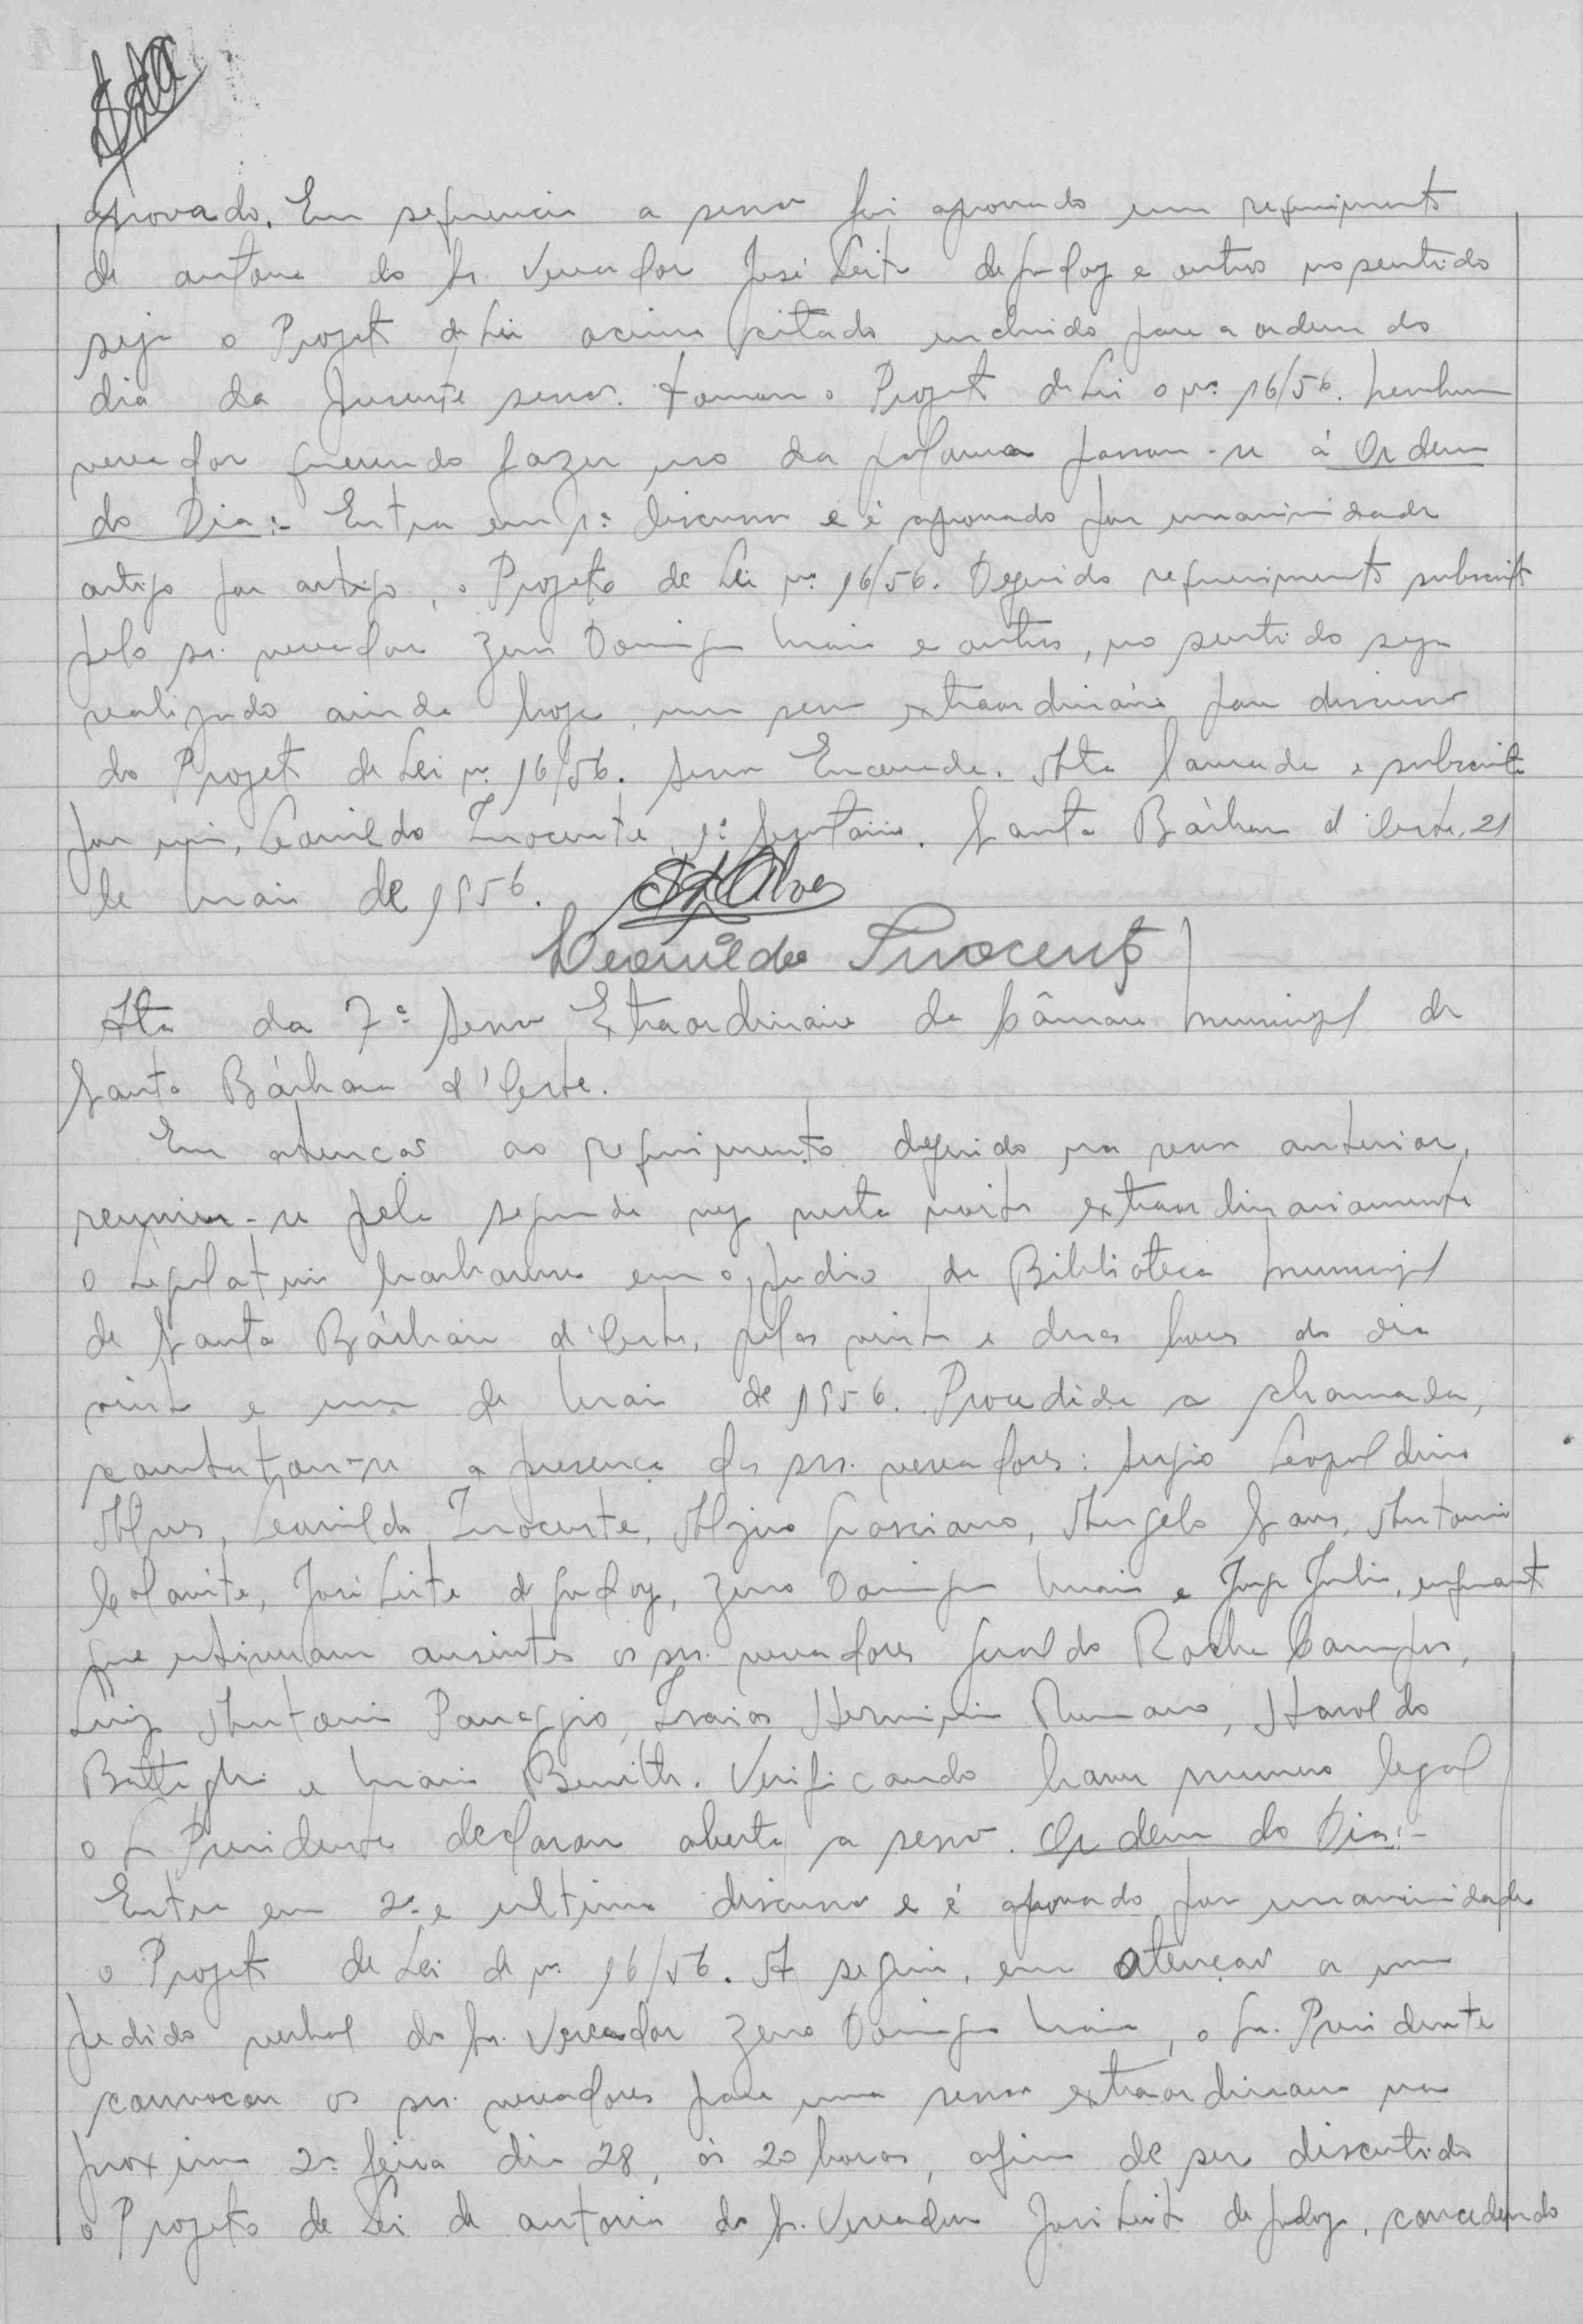 aprovado. Em sequencia a sessão foi aprovado um requerimento
de autoria do Sr. Vereador José Leite de Godoy e outros no sentido
seja o Projeto de Lei acima citado incluido para a ordem do
dia da presente sessão. Tomou o Projeto de Lei o nº 16/56. Nenhum
vereador querendo fazer uso da palavra passou-se à Ordem
do Dia:- Entra em 1ª discussão e é aprovado por unanimidade
artigo por artigo, o Projeto de Lei nº 16/56. Deferido requerimento subscrito
pelo sr. vereador Zeno Domingos Maia e outros, no sentido seja
realizado ainda hoje, uma sessão extraordinária para discussão
do Projeto de Lei nº 16/56. Sessão Encerrada. Ata lavrada e subscrita
por mim, Leonildo Inocente, 1º Secretário. Santa Bárbara d'Oeste, 21
de Maio de 1956. Alves
Leonildo Inocente
Ata da 7ª Sessão Extraordinária da Câmara Municipal de
Santa Bárbara d'Oeste.
Em atenção ao requerimento deferido na sessão anterior,
reuniu-se pela segunda vez nesta noite extraordinariamente
o Legislativo barbarense em o prédio da Biblioteca Municipal
de Santa Bárbara d'Oeste, pelas vinte e duas horas do dia
vinte e um de Maio de 1956. Procedida a chamada,
constatou-se a presença dos srs. vereadores: Sergio Leopoldino
Alves, Leonildo Inocente, Alziro Gasciano, Angelo Sans, Antonio
Colavite, José Leite de Godoy, Zeno Domingos Maia e Jorge Julio, enquanto
que estiveram ausentes os srs. vereadores Geraldo Rocha Campos,
Luiz Antonio Panaggio, Isaias Herminio Romano, Haroldo
Battagli e Mario Benith. Verificando haver numero legal
o Sr. Presidente declarou aberta a sessão. Ordem do Dia:-
Entra em 2ª e ultima discussão e é aprovado por unanimidade
o Projeto de Lei de nº 16/56. A seguir, em atenção a um
pedido verbal do Sr. Vereador Zeno Domingos Maia, o Sr. Presidente
convocou os srs. vereadores para uma sessão extraordinaria na
proxima 2ª feira dia 28, às 20 horas, afim de ser discutido
o Projeto de Lei de autoria do Sr. Vereador José Leite de Godoy, concedendo